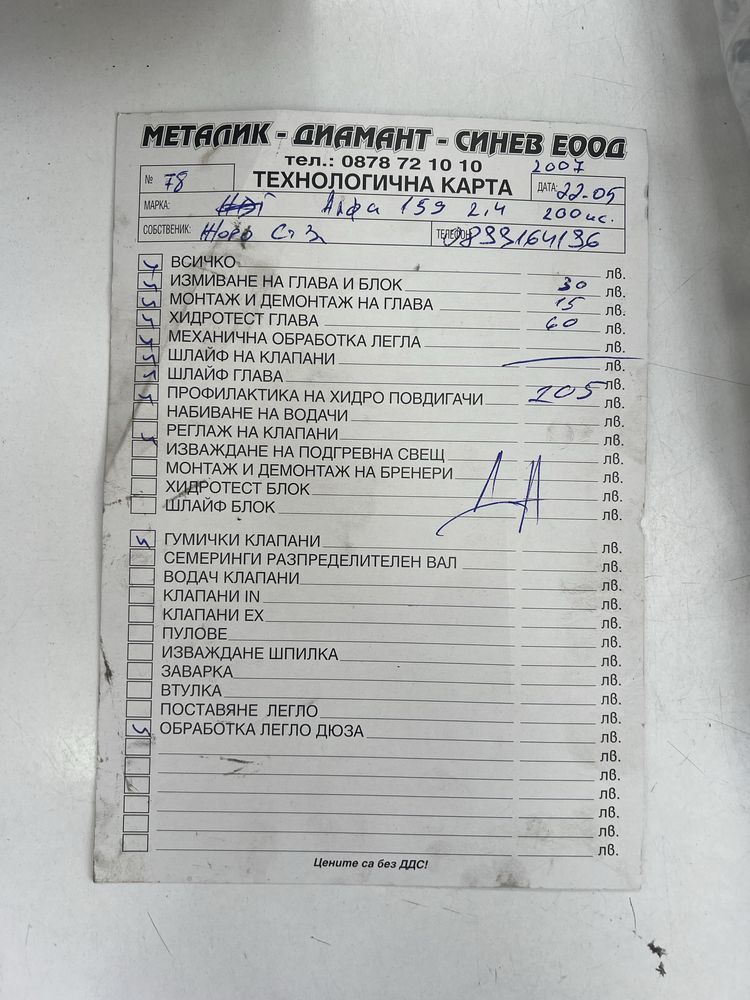 МЕТАЛИК - ДИАМАНТ - СИНЕВ ЕООД
тел.: 0878 72 10 10 2007
№ 78 ТЕХНОЛОГИЧНА КАРТА ДАТА: 22.05
МАРКА: Алфа 159 2,4 200кс.
СОБСТВЕНИК: Жоро Ст З ТЕЛЕФОН: 0899164136
ВСИЧКО лв.
ИЗМИВАНЕ НА ГЛАВА И БЛОК 30 лв.
МОНТАЖ И ДЕМОНТАЖ НА ГЛАВА 15 лв.
ХИДРОТЕСТ ГЛАВА 60 лв.
МЕХАНИЧНА ОБРАБОТКА ЛЕГЛА лв.
ШЛАЙФ НА КЛАПАНИ лв.
ШЛАЙФ ГЛАВА лв.
ПРОФИЛАКТИКА НА ХИДРО ПОВДИГАЧИ 205 лв.
НАБИВАНЕ НА ВОДАЧИ лв.
РЕГЛАЖ НА КЛАПАНИ лв.
ИЗВАЖДАНЕ НА ПОДГРЕВНА СВЕЩ лв.
МОНТАЖ И ДЕМОНТАЖ НА БРЕНЕРИ лв.
ХИДРОТЕСТ БЛОК лв.
ШЛАЙФ БЛОК лв.
ДА
ГУМИЧКИ КЛАПАНИ лв.
СЕМЕРИНГИ РАЗПРЕДЕЛИТЕЛЕН ВАЛ лв.
ВОДАЧ КЛАПАНИ лв.
КЛАПАНИ IN лв.
КЛАПАНИ EX лв.
ПУЛОВЕ лв.
ИЗВАЖДАНЕ ШПИЛКА лв.
ЗАВАРКА лв.
ВТУЛКА лв.
ПОСТАВЯНЕ ЛЕГЛО лв.
ОБРАБОТКА ЛЕГЛО ДЮЗА лв.
лв.
лв.
лв.
лв.
лв.
лв.
Цените са без ДДС!